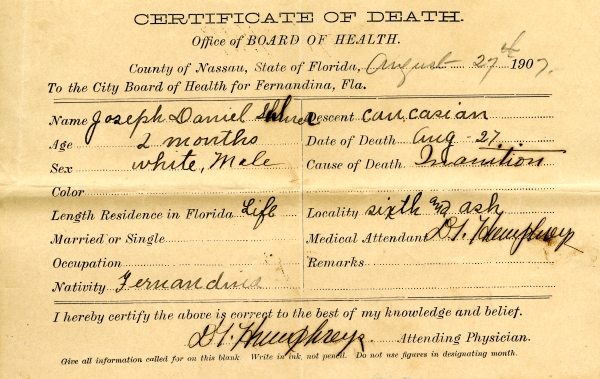 CERTIFICATE OF DEATH.
Office of BOARD OF HEALTH.
County of Nassau, State of Florida, August 27th 1907.
To the City Board of Health for Fernandina, Fla.
Name Joseph Daniel
Descent caucasian
Age 2 months
Date of Death Aug - 27
Sex white, Male
Cause of Death Inanition
Color
Length Residence in Florida Life
Locality sixth and ash
Married or Single
Medical Attendant D. Humphreys
Occupation
Remarks
Nativity Fernandina
I hereby certify the above is correct to the best of my knowledge and belief.
Humphreys Attending Physician.
Give all information called for on this blank Write in ink, not pencil. Do not use figures in designating month.